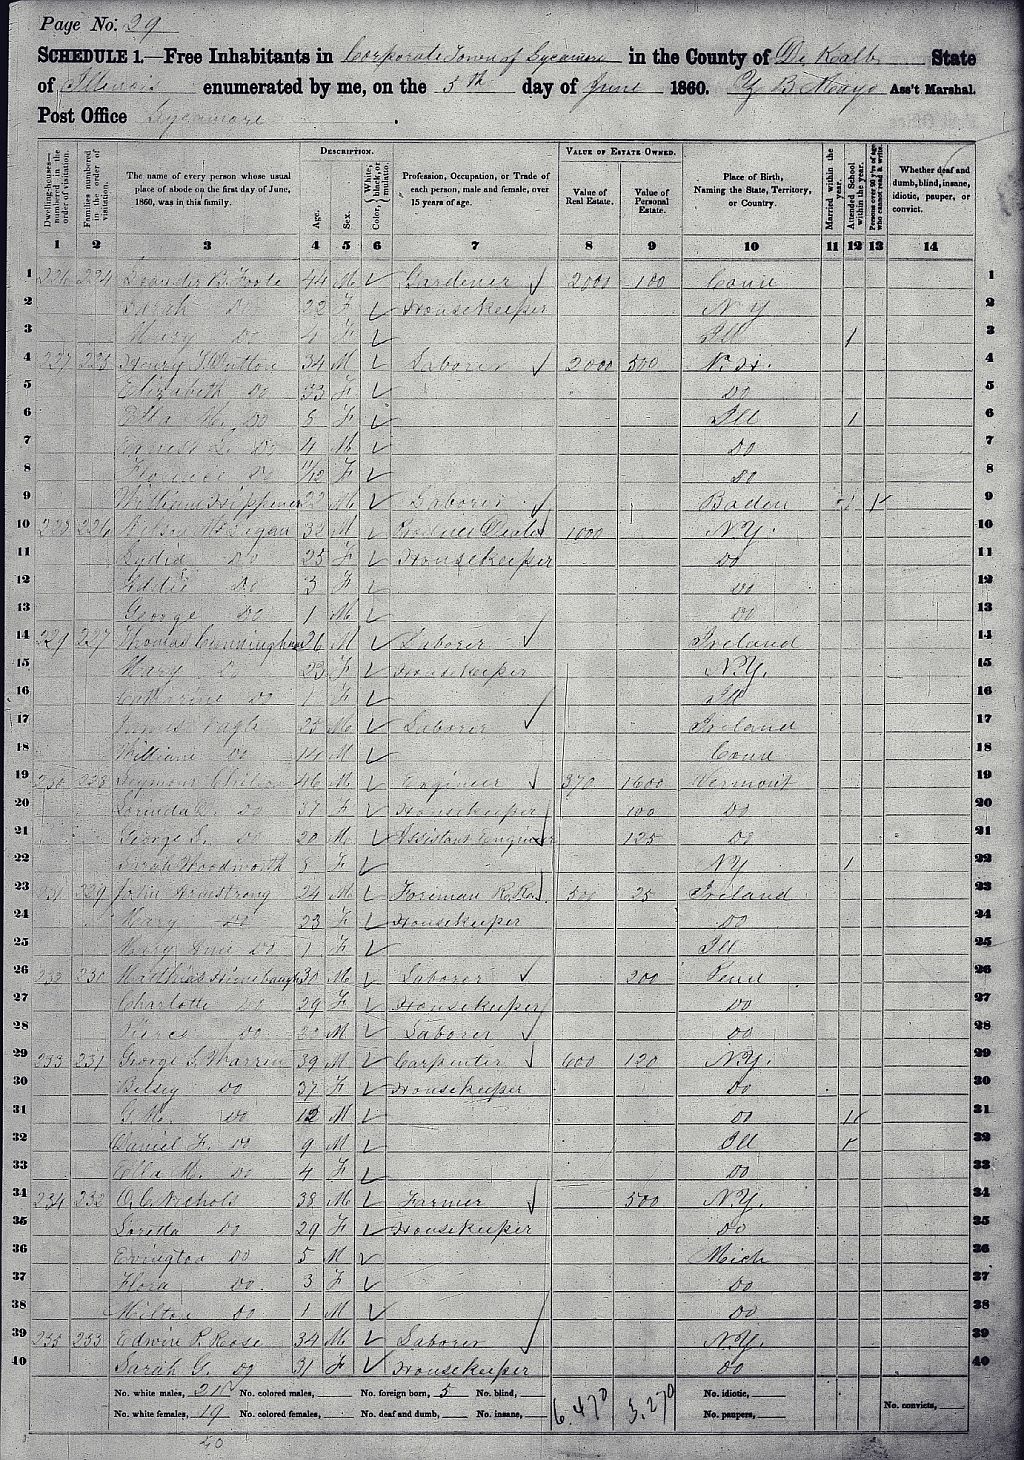 Page No. 29
SCHEDULE 1.—Free Inhabitants in Corporate Town of Sycamore in the County of De Kalb State
of Illinois enumerated by me, on the 5th day of June 1860. Ass't Marshal.
Post Office Sycamore
DESCRIPTION. VALUE OF ESTATE OWNED.
Dwelling-houses—numbered in the order of visitation. Families numbered in the order of visitation. The name of every person whose usual place of abode on the first day of June, 1860, was in this family. Age. Sex. Color, White, black, or mulatto. Profession, Occupation, or Trade of each person, male and female, over 15 years of age. Value of Real Estate. Value of Personal Estate. Place of Birth, Naming the State, Territory, or Country. Married within the year. Attended School within the year. Persons over 20 y'rs of age who cannot read & write. Whether deaf and dumb, blind, insane, idiotic, pauper, or convict.
1 2 3 4 5 6 7 8 9 10 11 12 13 14
1 226 224 Leander B. Foote 44 M Gardener 2000 100 Conn 1
2 Sarah Do 22 F Housekeeper N Y 2
3 Mary Do 4 F Ill 1 3
4 227 225 Henry Dutton 34 M Laborer 2000 500 4
5 Elizabeth Do 33 F Do 5
6 Ella M. Do 5 F Ill 1 6
7 L. Do 4 M Do 7
8 Florence Do 11/12 F Do 8
9 William 22 M Laborer Baden 9
10 228 226 32 M Produce Dealer 1000 N.Y. 10
11 Lydia Do 25 F Housekeeper Do 11
12 Addie Do 3 F Do 12
13 George Do 1 M Do 13
14 229 227 Thomas Cunningham 26 M Laborer Ireland 14
15 Mary Do 23 F Housekeeper N.Y. 15
16 Catharine Do 1 F Ill 16
17 James 25 M Laborer Ireland 17
18 William Do 14 M Conn 18
19 230 228 Seymour 46 M Engineer 370 1600 Vermont 19
20 Do 37 F Housekeeper 100 Do 20
21 George S. Do 20 M Assistant Engineer 125 Do 21
22 Sarah Woodworth 8 F N Y 1 22
23 231 229 John Armstrong 24 M Foreman R.R. 500 25 Ireland 23
24 Mary Do 23 F Housekeeper Do 24
25 Mary Ann Do 1 F Ill 25
26 232 230 Matthias 30 M Laborer 200 Penn 26
27 Charlotte Do 29 F Housekeeper Do 27
28 Do M Laborer Do 28
29 233 231 George S. Warren 39 M Carpenter 600 120 N.Y. 29
30 Betsey Do 37 F Housekeeper Do 30
31 G. M. Do 12 M Do 1 31
32 Daniel F. Do 9 M Ill 1 32
33 Ella M. Do 4 F Do 33
34 234 232 O. C. Nichols 38 M Farmer 500 N.Y. 34
35 Loretta Do 29 F Housekeeper Do 35
36 Do 5 M Mich 36
37 Flora Do 3 F Do 37
38 Milton Do 1 M Do 38
39 235 233 Edwin P. Rose 34 M Laborer N.Y. 39
40 Sarah G. Do 31 F Housekeeper Do 40
No. white males, 21 No. colored males, No. foreign born, 5 No. blind, 6.470 3.270 No. idiotic,
No. white females, 19 No. colored females, No. deaf and dumb, No. insane, No. paupers, No. convicts,
40